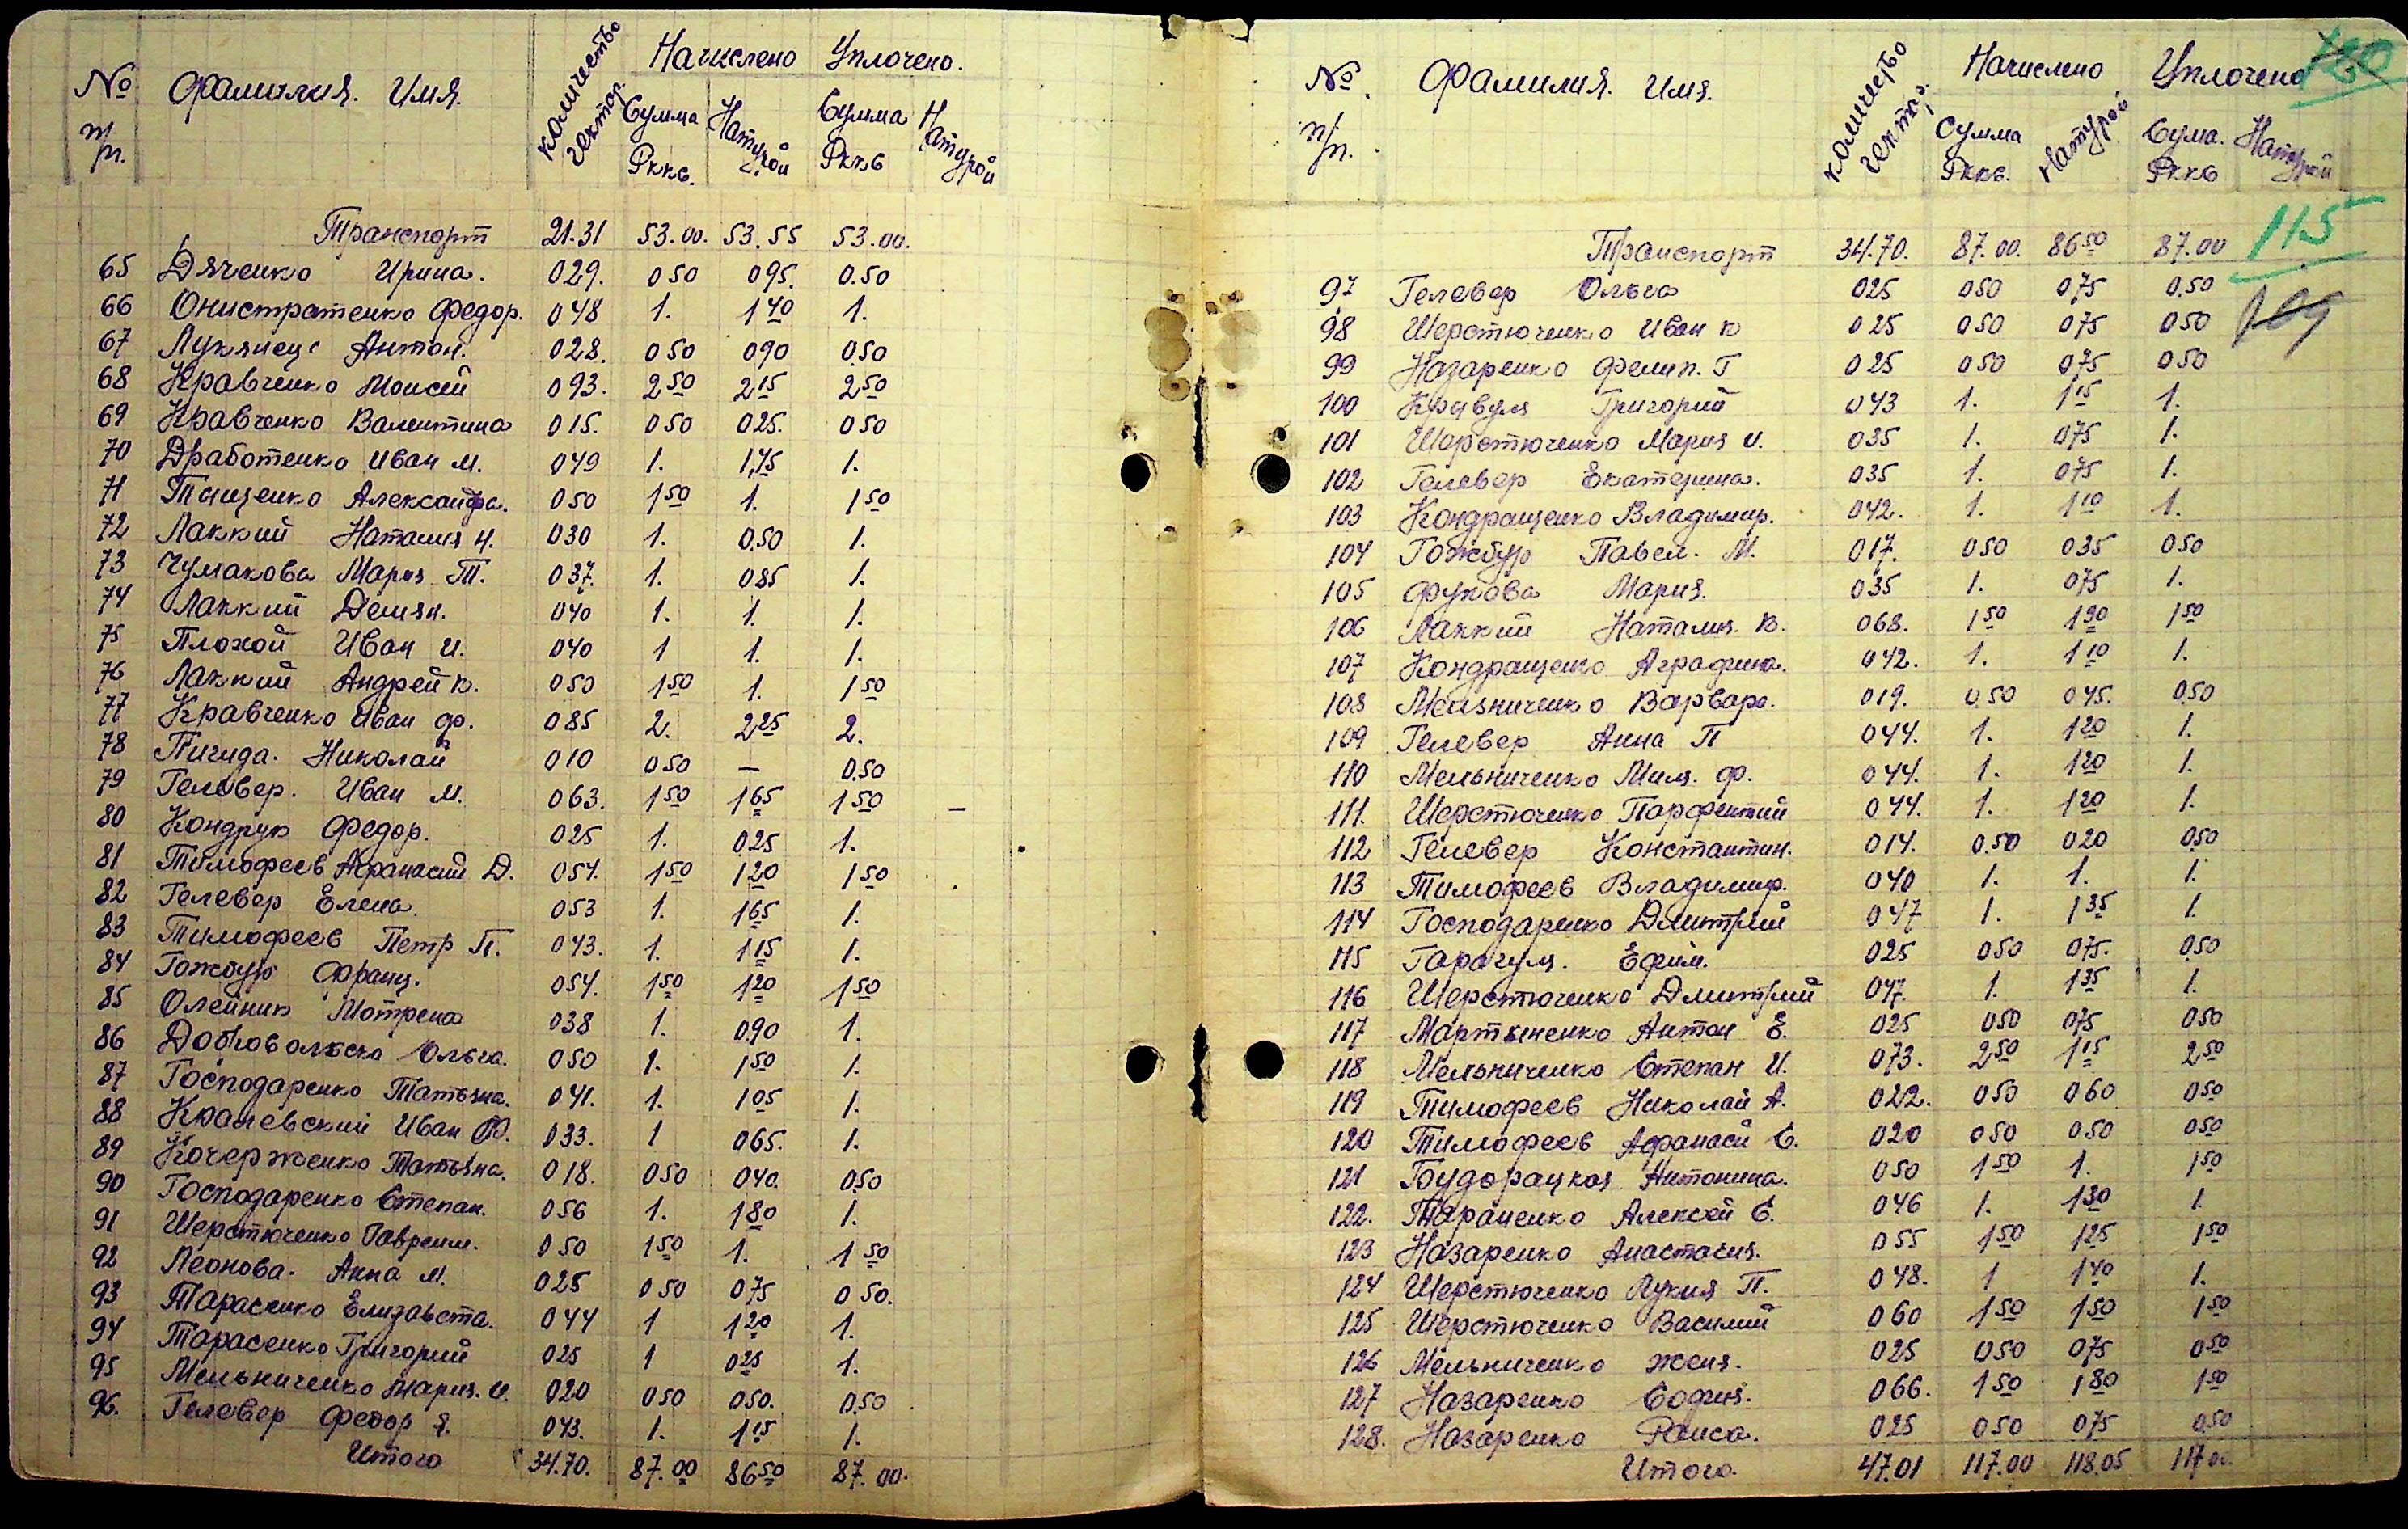 № п/п. Фамилия. Имя. Количество гектар. Начислено Уплочено.
Сумма Рккв. Натурой Сумма Рккв Натурой
Транспорт 21.31 53.00. 53.55 53.00.
65 Дяченко Ирина. 029. 050 095. 0.50
66 Онистратенко Федор. 048 1. 140 1.
67 Лукянец Антон. 028. 050 090 050
68 Кравченко Моисей 093. 250 215 250
69 Кравченко Валентина 015. 050 025. 050
70 Дработенко Иван М. 049 1. 1,45 1.
71 Танценко Александра. 050 150 1. 150
72 Лаккий Наталия Н. 030 1. 0.50 1.
73 Чумакова Мария Т. 037. 1. 085 1.
74 Лаккий Демян. 040 1. 1. 1.
75 Плохой Иван И. 040 1 1. 1.
76 Лаккий Андрей К. 050 150 1. 150
77 Кравченко Иван Ф. 085 2. 225 2.
78 Пигида. Николай 010 050 — 0.50
79 Гелевер. Иван М. 063. 150 165 150 –
80 Кондрук Федор. 025 1. 025 1.
81 Тимофеев Афанасий Д. 054. 150 120 150
82 Гелевер Елена. 053 1. 165 1.
83 Тимофеев Петр П. 043. 1. 115 1.
84 Гожбур Франц. 054. 150 120 150
85 Олейник Мотрена 038 1. 090 1.
86 Добровольска Ольга. 050 1. 150 1.
87 Господаренко Татьяна. 041. 1. 105 1.
88 Иван 033. 1 065. 1.
89 Кочерженко Татьяна. 018. 050 040. 050
90 Господаренко Степан. 056 1. 180 1.
91 Шерстюченко Гавреил. 050 150 1. 150
92 Леонова. Анна М. 025 050 075 050.
93 Тарасенко Елизавета. 044 1 120 1.
94 Тарасенко Григорий 025 1 025 1.
95 Мельниченко Мария. И. 020 050 050. 050
96. Гелевер Федор Я. 043. 1. 115 1.
Итого 34.70. 87.00 8650 87.00.
№ п/п. Фамилия. Имя. Количество гектар. Начислено Уплочено
Сумма Рккв. Натурой Сума. Рккв Натурой
115
Транспорт 34.70. 87.00. 8650 87.00
97 Гелевер Ольга 025 050 075 0.50
98 Шерстюченко Иван К 025 050 075 050
109
99 Назаренко Фелип. Г 025 050 075 050
100 Кравуля Григорий 043 1. 115 1.
101 Шерстюченко Мария И. 035 1. 075 1.
102 Гелевер Екатерина. 035 1. 075 1.
103 Кондращенко Владимир. 042. 1. 110 1.
104 Гожбур Павел. М. 017. 050 035 050
105 Фукова Мария. 035 1. 075 1.
106 Лаккий Наталия. В. 068. 150 190 150
107 Кондращенко Аграфина. 042. 1. 110 1.
108 Мельниченко Варвара. 019. 0.50 045. 050
109 Гелевер Анна П 044. 1. 120 1.
110 Мельниченко Миля. Ф. 044. 1. 120 1.
111. Шерстюченко Парфентий 044. 1. 120 1.
112 Гелевер Константин. 014. 0.50 020 050
113 Тимофеев Владимир. 040 1. 1. 1.
114 Господаренко Дмитрий 047 1. 135 1.
115 Гарагуля. Ефим. 025 050 075. 050
116 Шерстюченко Дмитрий 047. 1. 135 1.
117 Мартыненко Антон Е. 025 050 075 050
118 Мельниченко Степан И. 073. 250 115 250
119 Тимофеев Николай А. 022. 050 060 050
120 Тимофеев Афанасй С. 020 050 050 050
121 Гоудорацкая Антонина. 050 150 1. 150
122. Тараненко Алексей С. 046 1. 130 1.
123 Назаренко Анастасия. 055 150 125 150
124 Шерстюченко Лукия П. 048. 1 140 1.
125 Шерстюченко Василий 060 150 150 150
126 Мельниченко Женя. 025 050 075 050
127 Назаренко София. 066. 150 180 150
128. Назаренко Раиса. 025 050 075 050
Итого. 47.01 117.00 118.05 117.00